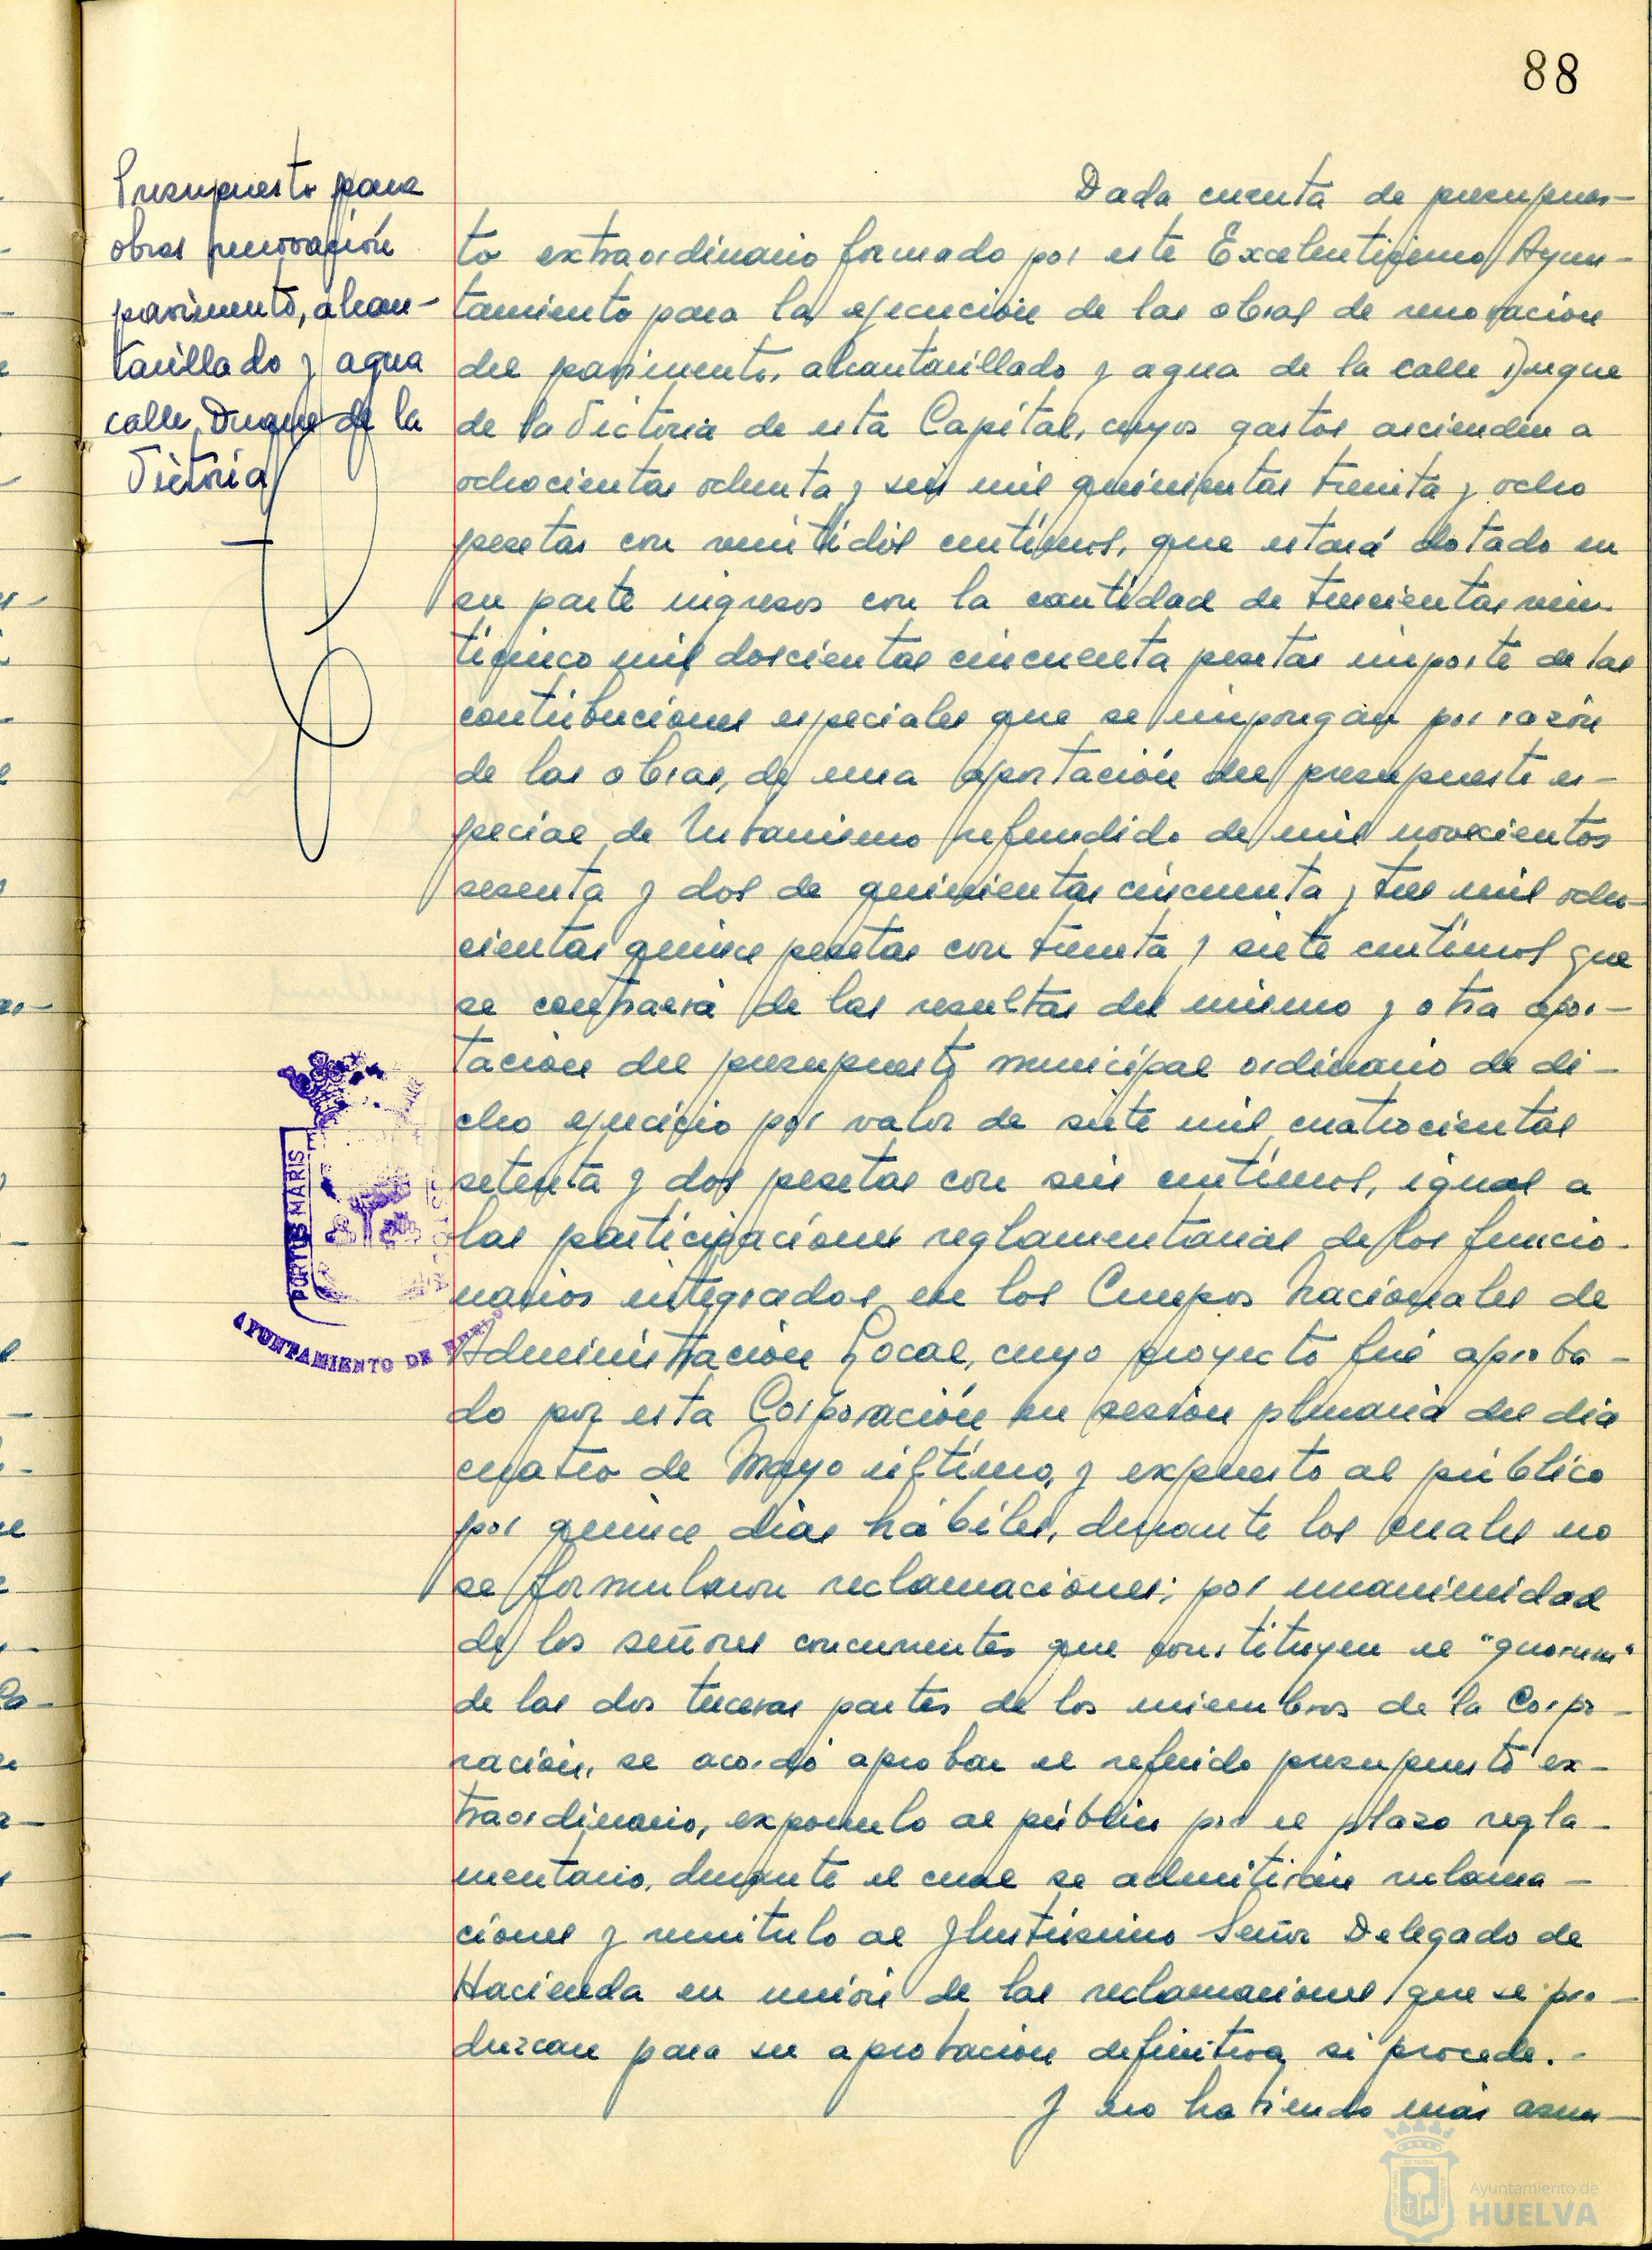 88
Presupuesto para
obras renovación
pavimento, alcan-
tarillado y agua
calle Duque de la
Victoria
Dada cuenta de presupues-
to extraordinario formado por este Excelentísimo Ayun-
tamiento para la ejecución de las obras de renovación
del pavimento, alcantarillado y agua de la calle Duque
de la Victoria de esta Capital, cuyos gastos ascienden a
ochocientas ochenta y seis mil quinientas treinta y ocho
pesetas con veintidós centimos, que estará dotado en
su parte ingresos con la cantidad de trescientas vein-
ticinco mil doscientas cincuenta pesetas importe de las
contribuciones especiales que se impongan por razón
de las obras, de una aportación del presupuesto es-
pecial de Urbanismo refundido de mil novecientos
sesenta y dos de quinientas cincuenta y tres mil ocho-
cientas quince pesetas con treinta y siete centimos que
se contraerá de las resultas del mismo y otra apor-
tación del presupuesto municipal ordinario de di-
cho ejercicio por valor de siete mil cuatrocientas
setenta y dos pesetas con seis centimos, igual a
las participaciones reglamentarias de los funcio-
narios integrados en los Cuerpos Nacionales de
Administración Local, cuyo proyecto fué aproba-
do por esta Corporación en sesión plenaria del dia
cuatro de Mayo último, y expuesto al público
por quince dias hábiles, durante los cuales no
se formularon reclamaciones; por unanimidad
de los señores concurrentes que constituyen el "quorum"
de las dos terceras partes de los miembros de la Corpo-
ración, se acordó aprobar el referido presupuesto ex-
traordinario, exponerlo al público por el plazo regla-
mentario, durante el cual se admitirán reclama-
ciones y remitirlo al Ilustrísimo Señor Delegado de
Hacienda en unión de las reclamaciones que se pro-
duzcan para su aprobación definitiva si procede.-
Y no habiendo más asun-
PORTUS MARIS
AYUNTAMIENTO DE HUELVA
Ayuntamiento de
HUELVA